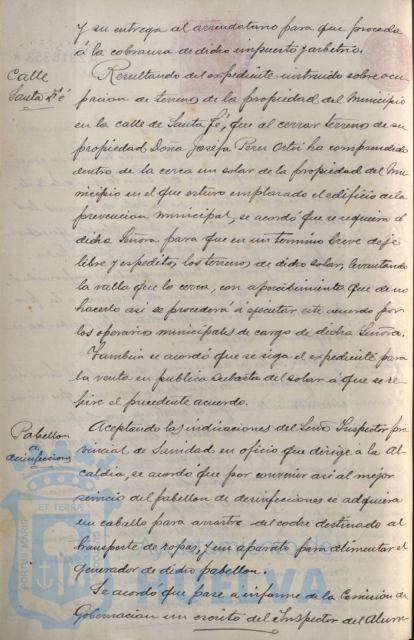 y su entrega al arrendatario para que proceda
á la cobranza de dicho impuesto y arbitrio.
Calle
Santa Fé
Resultando del expediente instruido sobre ocu
pacion de terreno de la propiedad del Municipio
en la calle de Santa Fé, que al cerrar terreno de su
propiedad Doña Josefa Perez Ortiz ha comprendido
dentro de la cerca un solar de la propiedad del Mu
nicipio en el que estuvo emplazado el edificio de la
prevencion municipal, se acordó que se requiera á
dicha Señora para que en un termino breve deje
libre y expeditos los terrenos de dicho solar, levantando
la valla que lo cerca, con apercibimiento que de no
hacerlo asi se procederá á ejecutar este acuerdo por
los operarios municipales de cargo de dicha Señora.
Tambien se acordó que se siga el expediente para
la venta en publica subasta del solar á que se re
fiere el precedente acuerdo.
Pabellon
de
desinfecciones
Aceptando las indicaciones del Señor Inspector pro
vincial de Sanidad en oficio que dirige á la Al
caldia, se acordó que por convenir asi al mejor
servicio del pabellon de desinfecciones se adquiera
un caballo para arrastre del coche destinado al
transporte de ropas, y un aparato para alimentar el
generador de dicho pabellon.
Se acordó que pase á informe de la Comision de
Gobernacion un escrito del Inspector del Alum
PORTUS MARIS ET TERRÆ
HUELVA